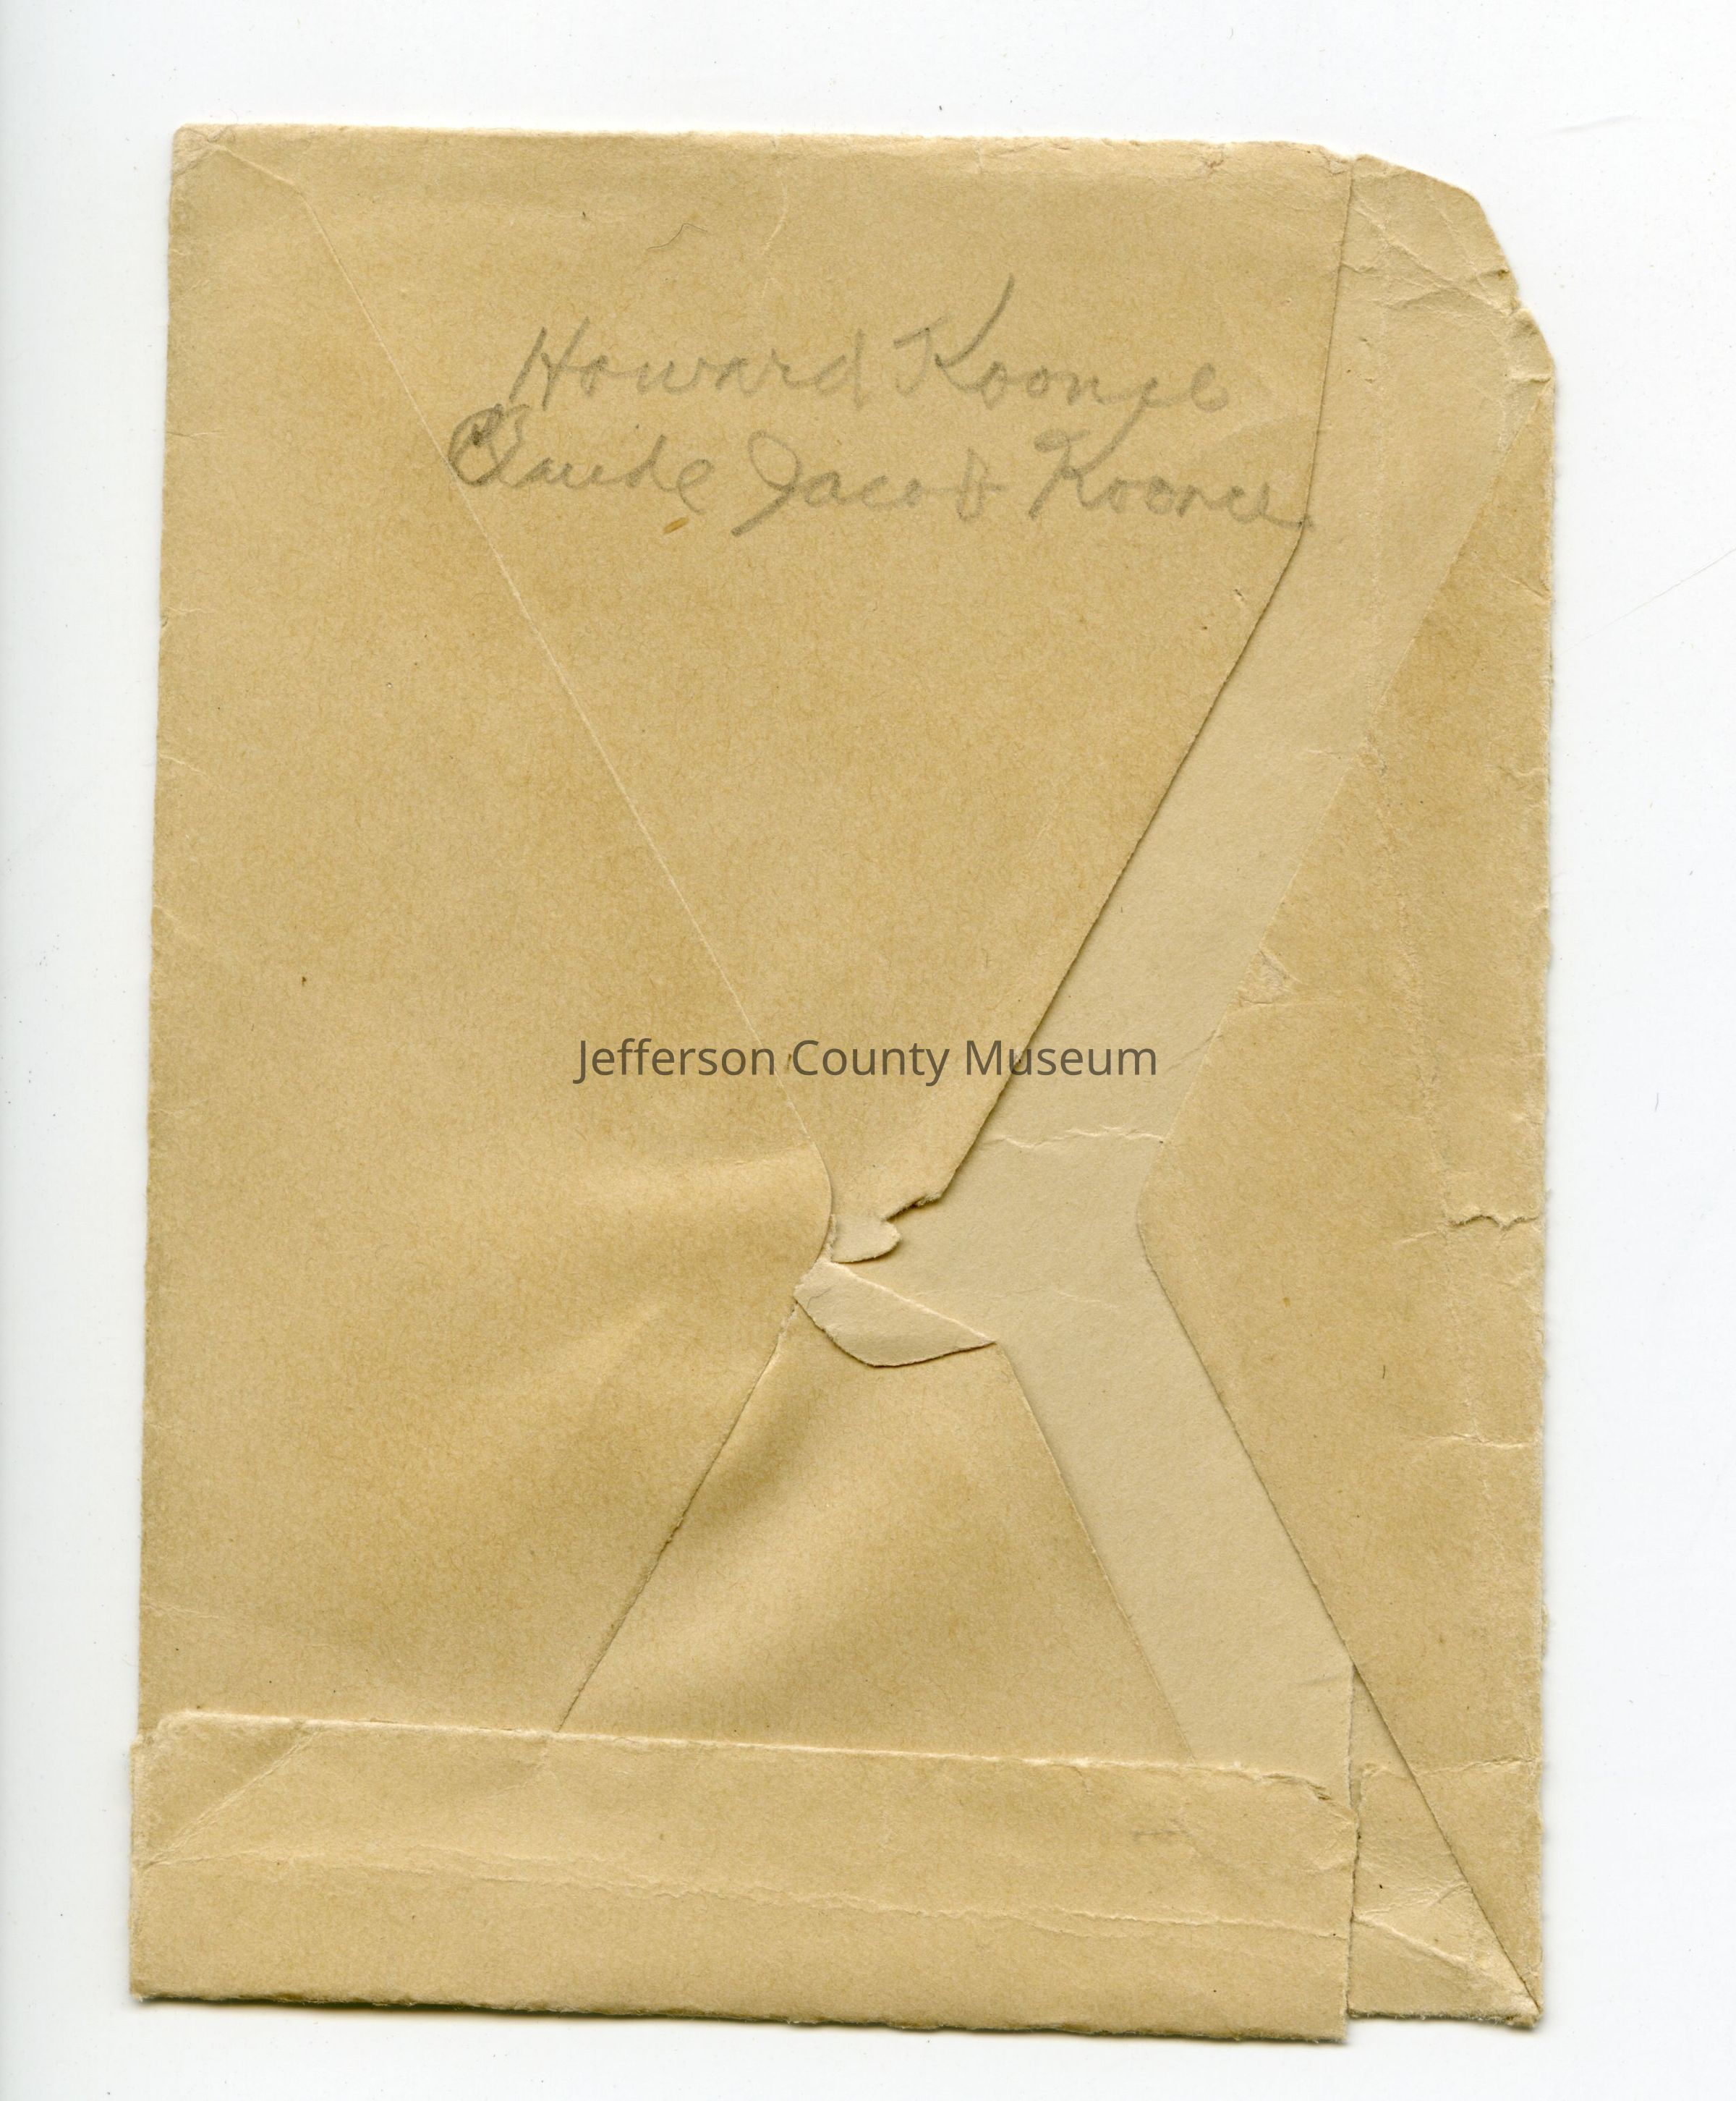 Howard Koonce
Claude Jacob Koonce
Jefferson County Museum